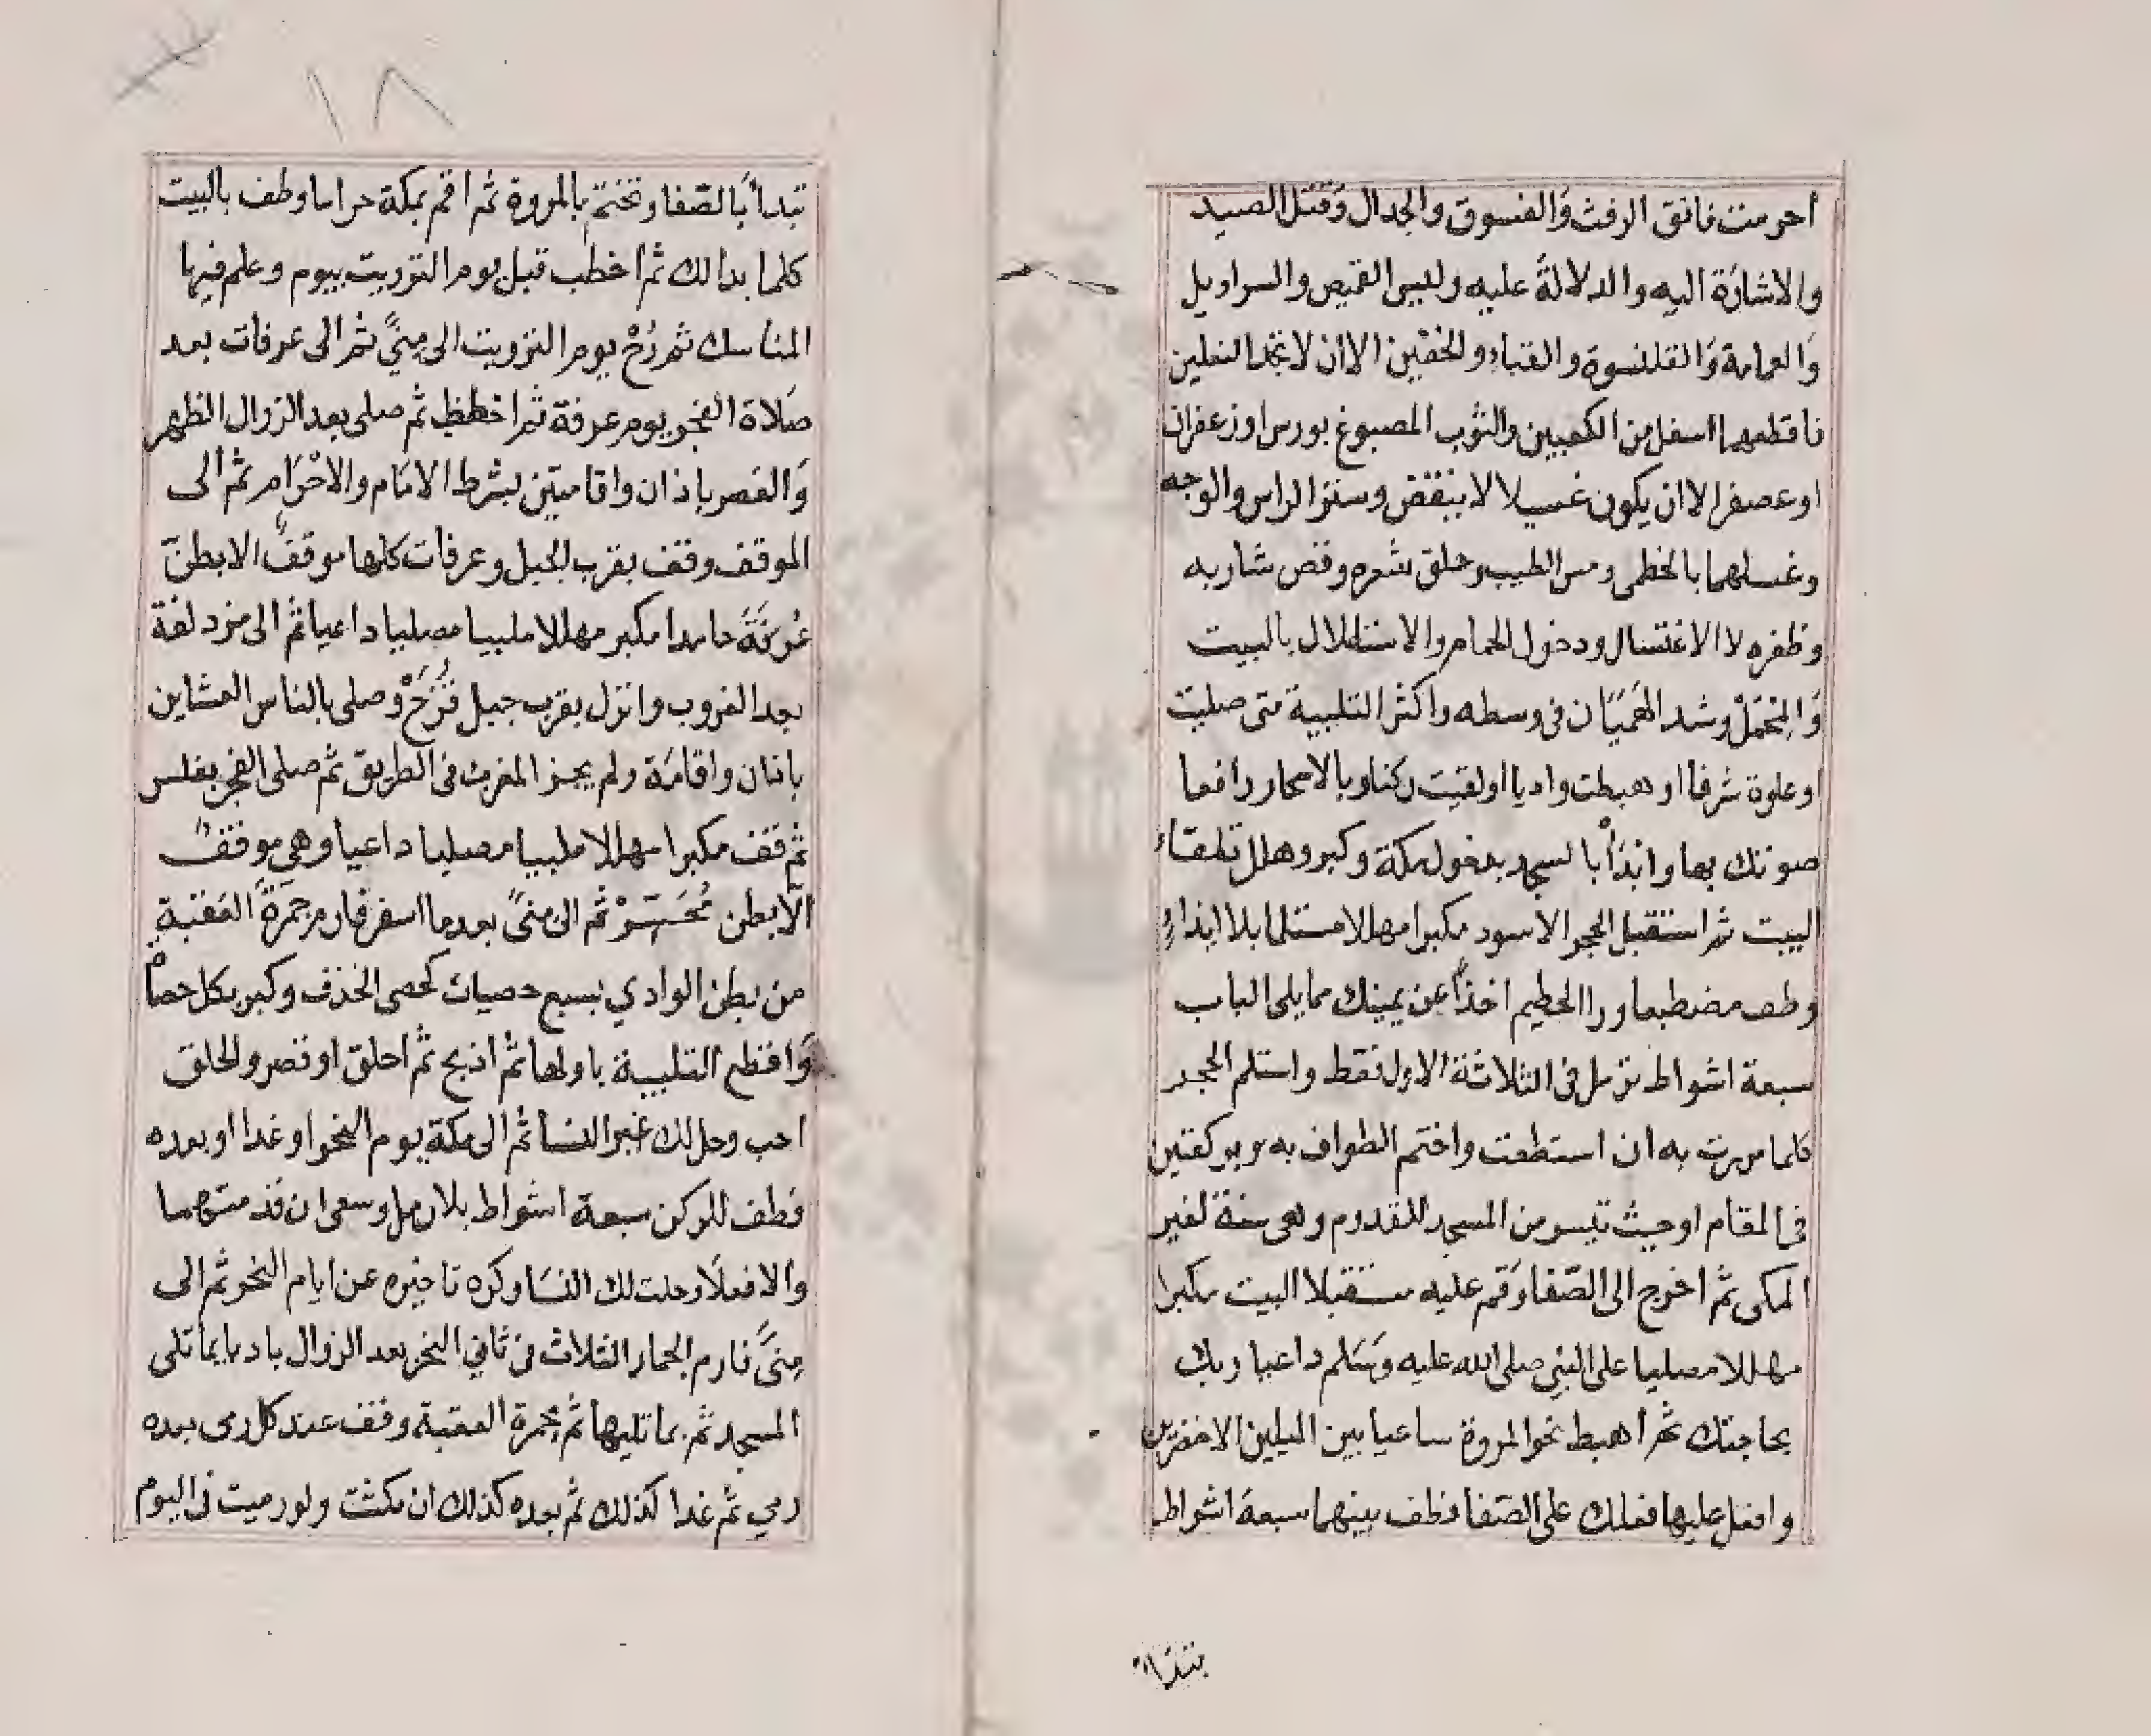 أحرمت فاتق الرفث وَالفسوق والجدال وَقتل الصيد
والاشارَة اليه والدلالةَ عليه ولبس القميص والسراويل
وَالعمامة وَالقلنسوة والقباء والخفين الا أن لا تجد النعلين
فاقطعهما اسفل من الكعبين والثوب المصبوغ بورس اوزعفران
اوعصفر الا ان يكون غسيلا لا ينفض وستر الراس والوجه
وغسلهما بالخطمى ومس الطيب وحلق شعره وقص شاربه
وظفره لا الاغتسال ودخول الحمام والاستظلال بالبيت
وَالمِحْمَلْ وشد الهَميَان فى وسطه واكثر التلبية متى صليت
اوعلوة شرفا او هبطت واديا اولقيت ركبا وبالاسحار رافعا
صوتك بها وابْدَأ بالمسجد بدخول مكة وكبر وهلل تلقاء
البيت ثم استقبل الحجر الاسود مكبرا مهللا مستلما بلا ايذاءٍ
وطف مضطبعا ورا الحطيم اخذًا عن يمينك مما يلى الباب
سبعة اشواط ترمل فى الثلاثة الاول فقط واستلم الحجر
كلما مررت به ان استطعت واختم الطواف به وبركعتين
فى المقام اوحيث تيسر من المسجد للقدوم وهى سنة لغير
المكى ثم اخرج الى الصّفا وَقم عليه مستقبلا البيت مكبرا
مهللا مصليا على النبي صلى الله عليه وَسَلم داعيا ربك
بحاجتك ثم أهبط نحو المروة ساعيا بين الميلين الاخضرين
وافعل عليها فعلك على الصّفا فطف بينهما سبعة اشواط
١٨
تبدأ بَالصّفا وتختم بالمروة ثم اقم بمكة حراما وطف بالبيت
كلما بدا لك ثم اخطب قبل يوم التروية بيوم وعلم فيها
المناسك ثم رُحْ يوم التروية الى مِنىً ثم الى عرفات بعد
صَلاة الفجر يوم عرفة ثم اخطب ثم صلى بعد الزوال الظهر
وَالعصر باذان واقامتين بشرط الامَام والاحْرَام ثم الى
الموقف وقف بقرب الجبل وعرفات كلها موقفٌ الا بطنَ
عُرَنَةَ حامدا مكبر مهللا ملبيا مصليا داعيا ثم الى مزدلفة
بعد الغروب وانزل بقرب جبل قُزَحْ وصلى بالناس العشاين
باذان واقامَة ولم يجز المغرب فى الطريق ثم صلى الفجر بغلس
ثم قف مكبرا مهللا ملبيا مصليا داعيا وهى موقفٌ
الَّا بطن مُحَسّرْ ثم الى منىً بعد ما اسفر فارم جمَرَةَ العَقبة
من بطن الوادي بسبع حصيات كحصى الخذف وكبر بكل حصاْ
وَاقطع التلبية باولها ثم اذبح ثم احلق اوقصر والحلق
احب وحل لك غير النسا ثم الى مكة يوم النحر اوغدا اوبعده
فطف للركن سبعة اشواط بلا رمل وسعى ان قدمتهما
والا فعلَا وحلت لك النسَا وكره تاخيره عن ايام النحر ثم الى
مِنىً فارم الجمار الثلاث فى ثاني النحر بعد الزوال باديا بما تلى
المسجد ثم بما تليها ثم بجمرة العقبة وقف عند كل رمى بعده
رمي ثم غدا كذلك ثم بعده كذلك ان مكثت ولو رميت فى اليوم